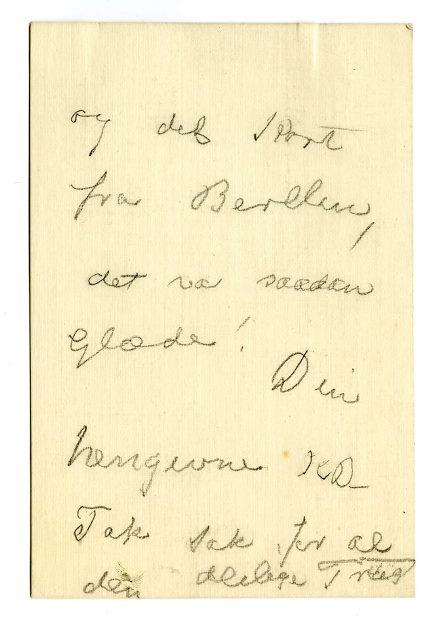 og det Kort
fra Berlin,
det va saadan
Glæde!
Din
hengivne KD
Tak tak for al
den deilige Træs